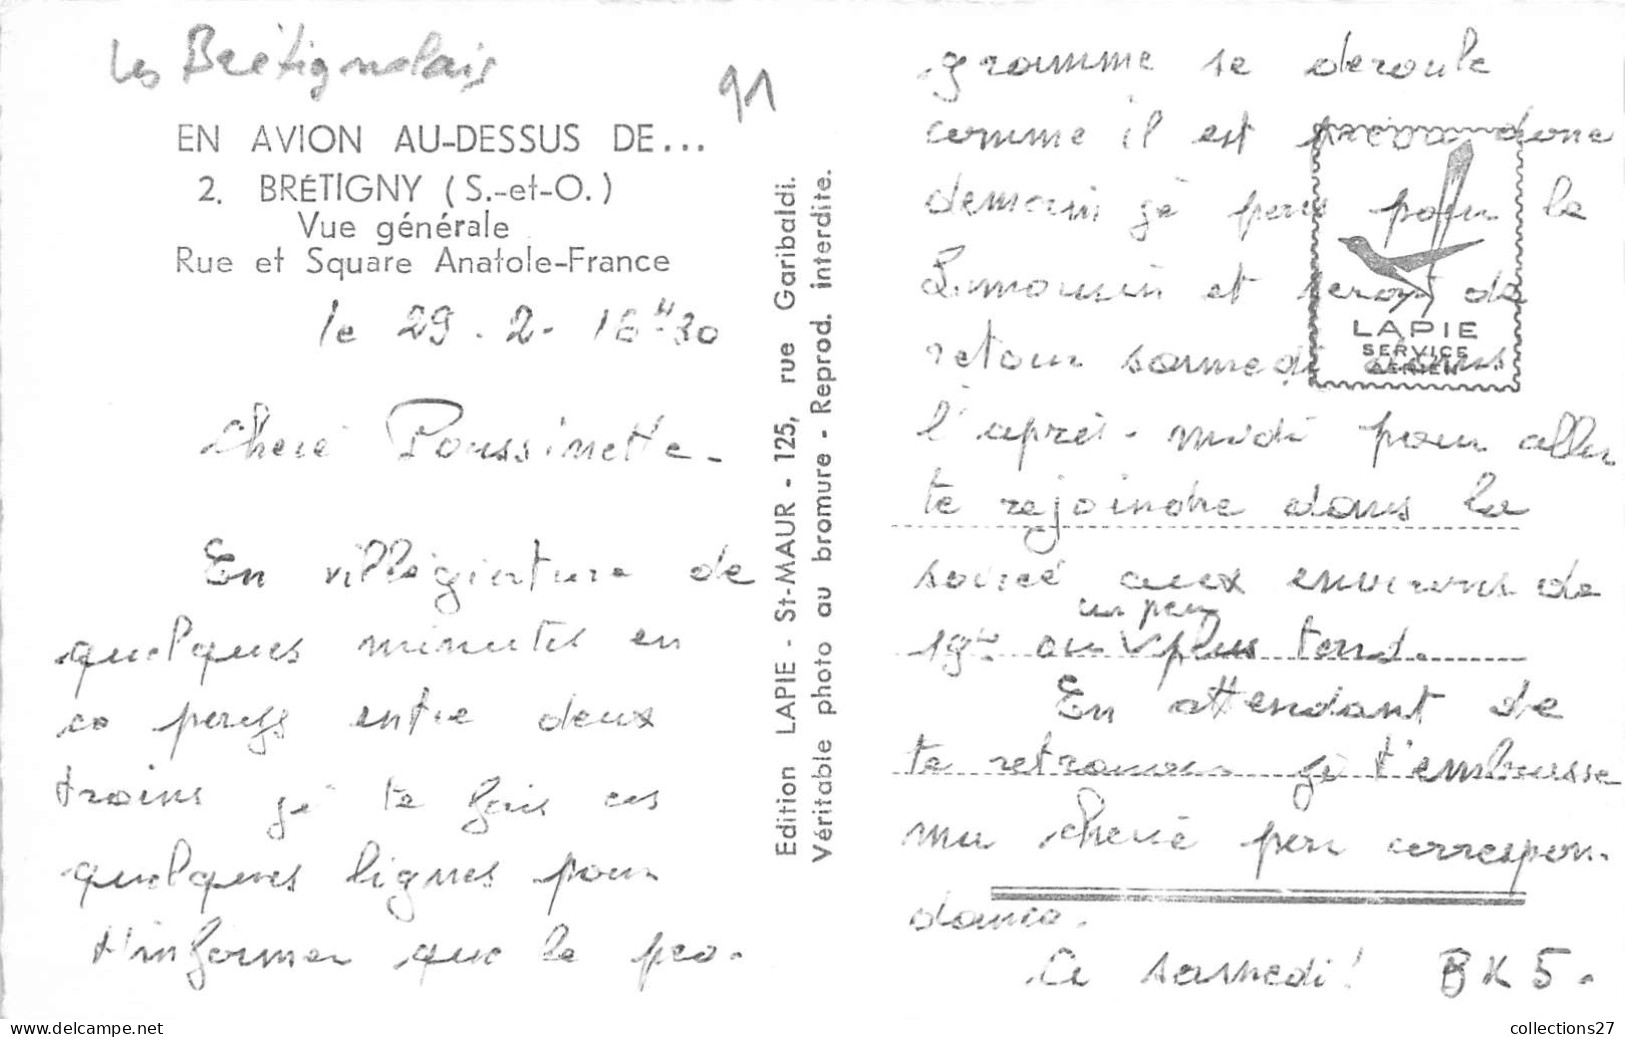 Les Brétignolais
91
EN AVION AU-DESSUS DE...
2. BRÉTIGNY (S.-et-O.)
Vue générale
Rue et Square Anatole-France
le 29-2- 16H30
Cherie Poussinette-
En villégiature de
quelques minutes en
ce pays entre deux
trains je te fais ces
quelques lignes pour
t'informer que le pro-
Edition LAPIE - St-MAUR - 125, rue Garibaldi.
Véritable photo au bromure - Reprod. interdite.
gramme se deroule
comme il est donc
demain je pars pour le
Limousin et serai de
retour samedi dans
l'après-midi pour aller
te rejoindre dans la
soirée aux environs de
un peu
19h ou plus tard.
En attendant de
te retrouver je t'embrasse
ma cherie par correspon-
dance.
Ce samedi! BX 5.
LAPIE
SERVICE
AÉRIEN
www.delcampe.net
collections27